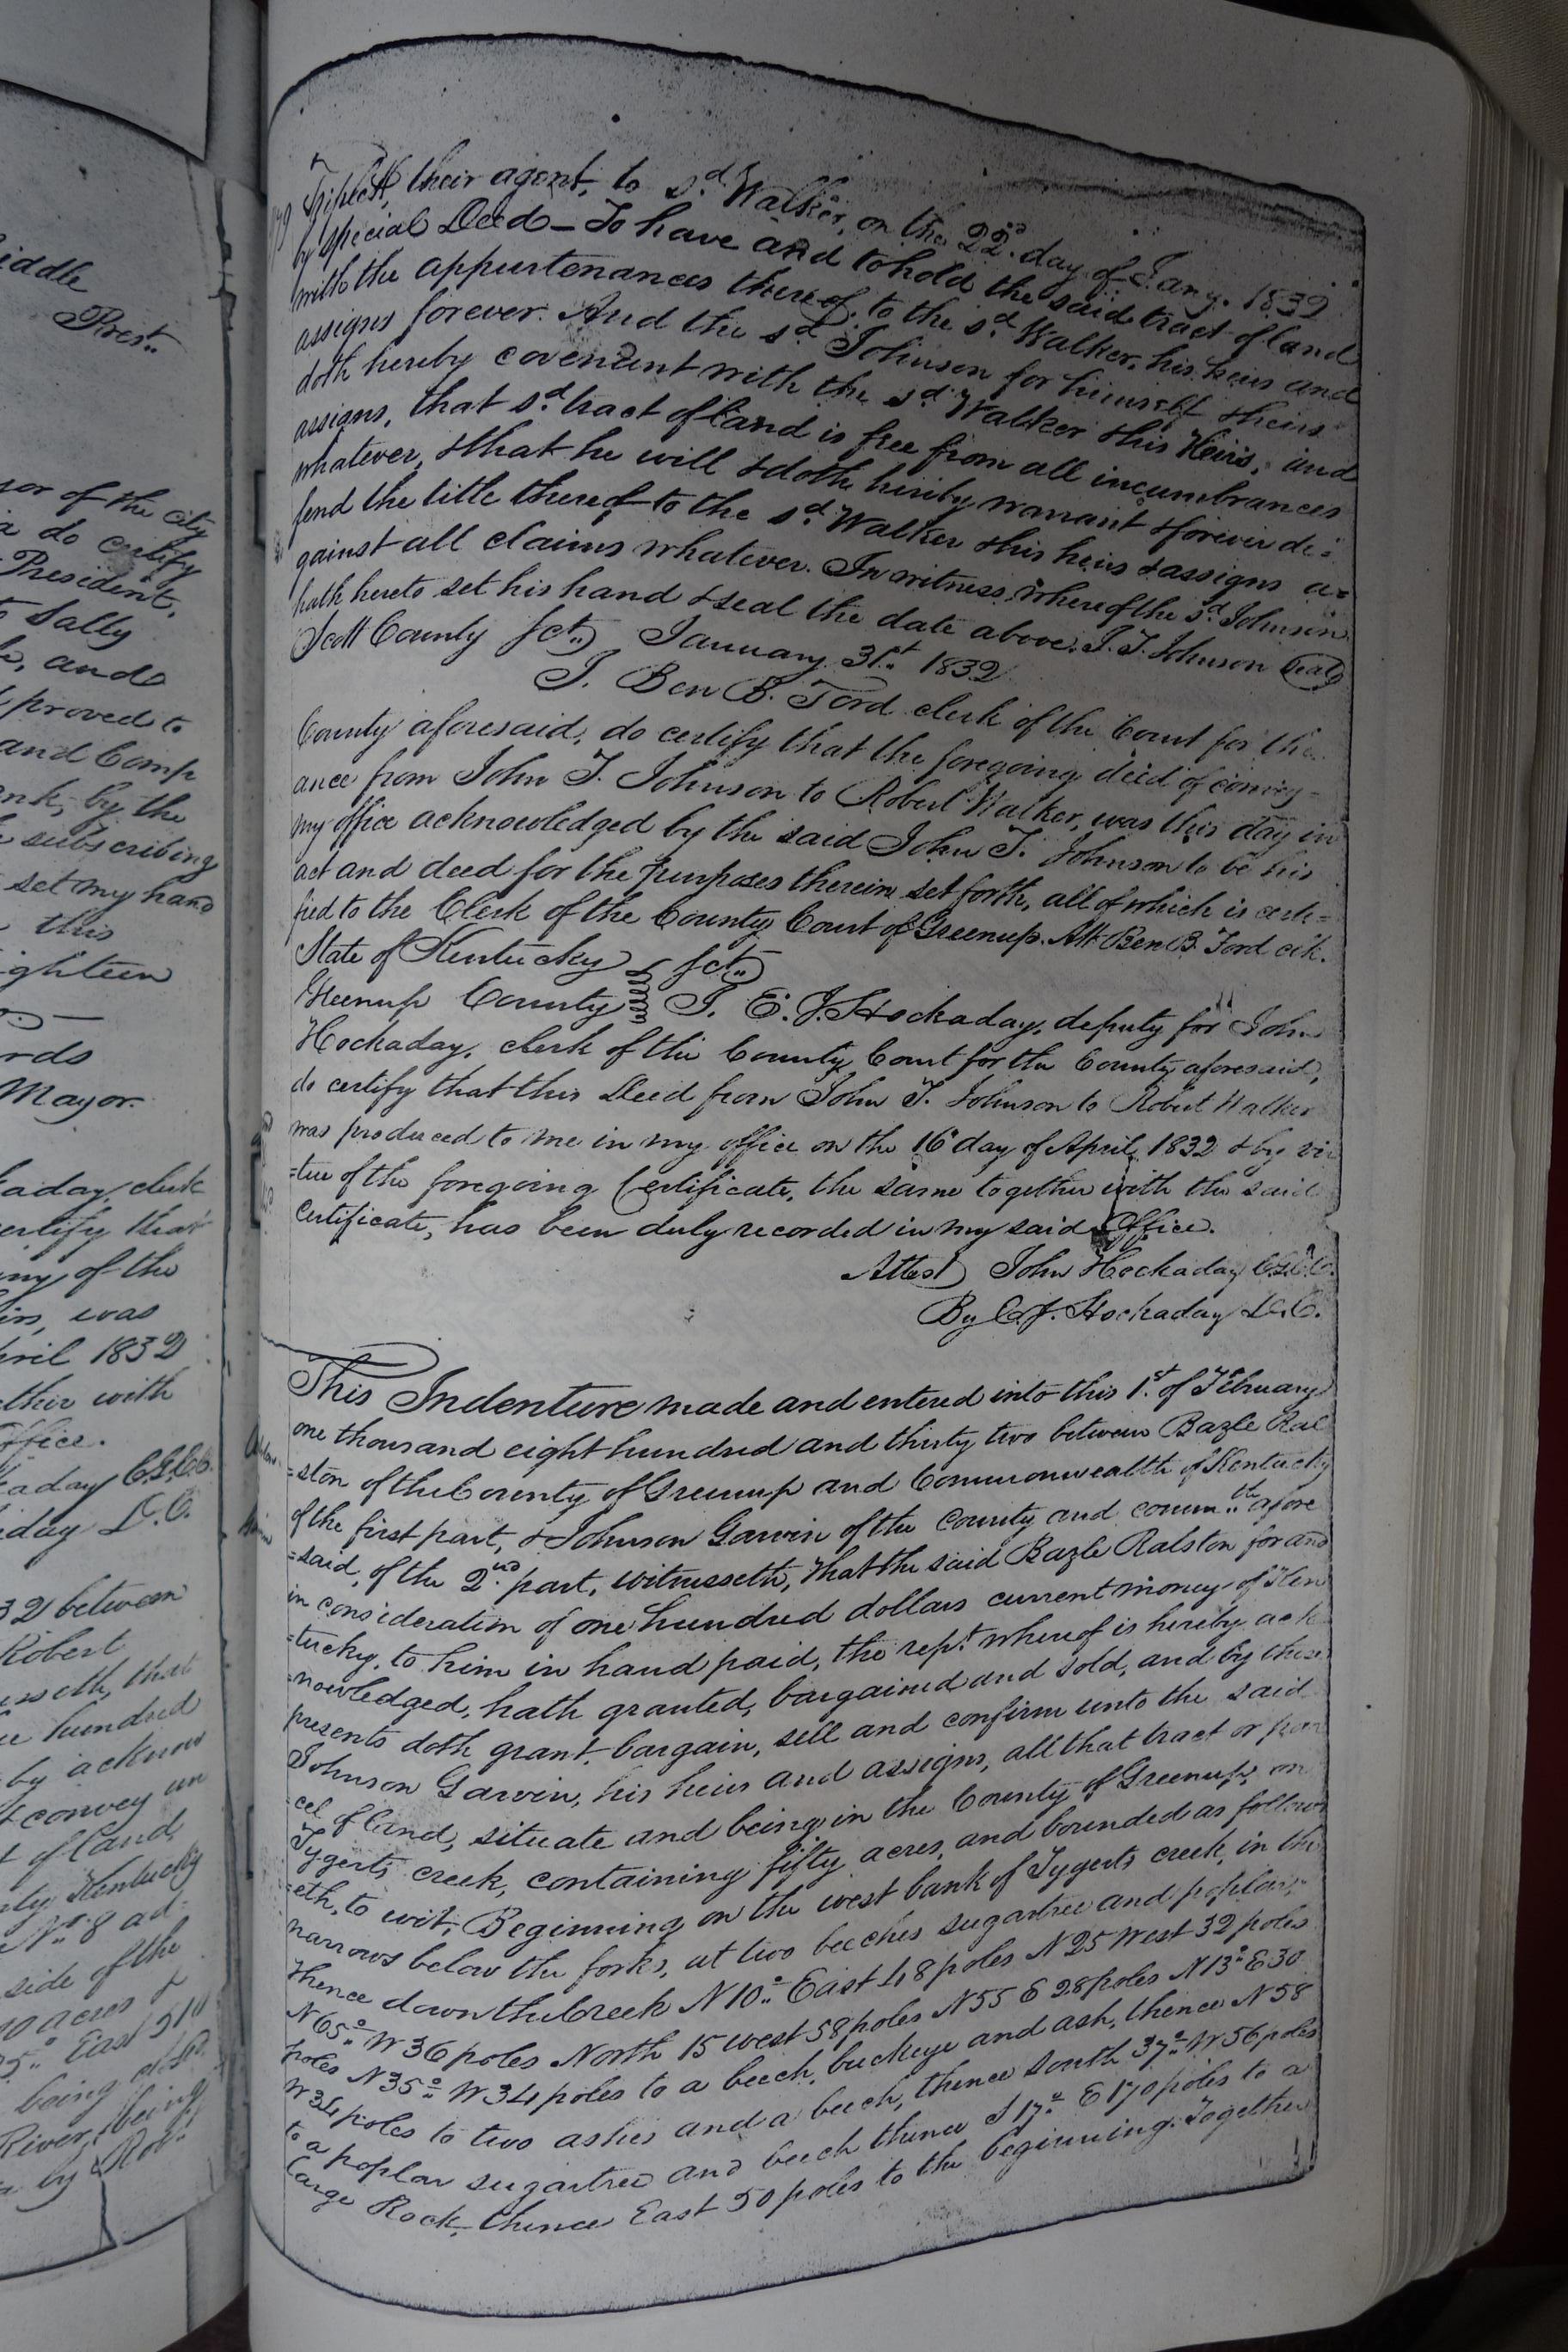 iddle
Prest.
sor of the city
a do certify
President,
to Sally
, and
proved to
and Comp
nk, by the
subscribing
set my hand
this
ighteen
rds
Mayor.
aday, clerk
ertify that
ny of the
irs, was
pril 1832
ther with
office.
aday C.G.C.C.
day D.C.
32 between
Robert
esseth, that
hundred
by acknow
convey un
t of land,
nty Kentucky
No. 8 ad-
side of the
acres &
East
being
River, being
by Rob.
Triplett, their agent, to sd. Walker, on the 22d. day of Jany. 1832
by special Deed - To have and to hold the said tract of land
with the appurtenances thereof, to the sd Walker, his heirs and
assigns forever. And the sd Johnson for himself & heirs
doth hereby covenant with the sd Walker & his Heirs, and
assigns, that sd. tract of land is free from all incumbrances
whatever, & that he will & doth hereby warrant & forever de=
fend the title thereof to the sd. Walker & his heirs & assigns a=
gainst all claims whatever. In witness whereof the sd. Johnson
hath hereto set his hand & seal the date above. J. T. Johnson Seal
Scott County Sct. January 31st. 1832
I. Ben B. Ford clerk of the Court for the
County aforesaid, do certify that the foregoing deed of convey=
ance from John T. Johnson to Robert Walker, was this day in
my office acknowledged by the said John T. Johnson to be his
act and deed for the purposes therein set forth, all of which is certi=
fied to the Clerk of the County Court of Greenup. Att Ben B. Ford clk.
State of Kentucky Sct.
Greenup County I. E. J. Hockaday, deputy for John
Hockaday, clerk of the County Court for the County aforesaid,
do certify that this Deed from John T. Johnson to Robert Walker
was produced to me in my office on the 16 day of April 1832 & by vir
=tue of the foregoing Certificate, the same together with the said
Certificate, has been duly recorded in my said Office.
Attest John Hockaday C.G.C.C.
By E. J. Hockaday D.C.
This Indenture made and entered into this 1st. of February
one thousand eight hundred and thirty two between Bazle Ral
=ston of the County of Greenup and Commonwealth of Kentucky
of the first part, & Johnson Garvin of the County and comm.th afore
=said, of the 2nd. part, witnesseth, that the said Bazle Ralston for and
in consideration of one hundred dollars current money of Ken
=tucky, to him in hand paid, the rept. whereof is hereby ack
=nowledged, hath granted, bargained and sold, and by these
presents doth grant, bargain, sell and confirm unto the said
Johnson Garvin, his heirs and assigns, all that tract or par
=cel of land, situate and being in the County of Greenup, on
Tygerts creek, containing fifty acres, and bounded as follow
=eth, to wit, Beginning on the west bank of Tygerts creek, in the
narrows below the forks, at two beeches sugartree and poplar,
thence down the Creek N 10° East 48 poles N 25 West 32 poles
N 65° W 36 poles North 15 west 58 poles N 55 E 28 poles N 13° E 30
poles N 35° W 34 poles to a beech, buckeye and ash, thence N 58
W 34 poles to two ashes and a beech, thence South 37° W 56 poles
to a poplar sugartree and beech thence S 17° E 170 poles to a
large Rock, thence East 50 poles to the beginning. Together